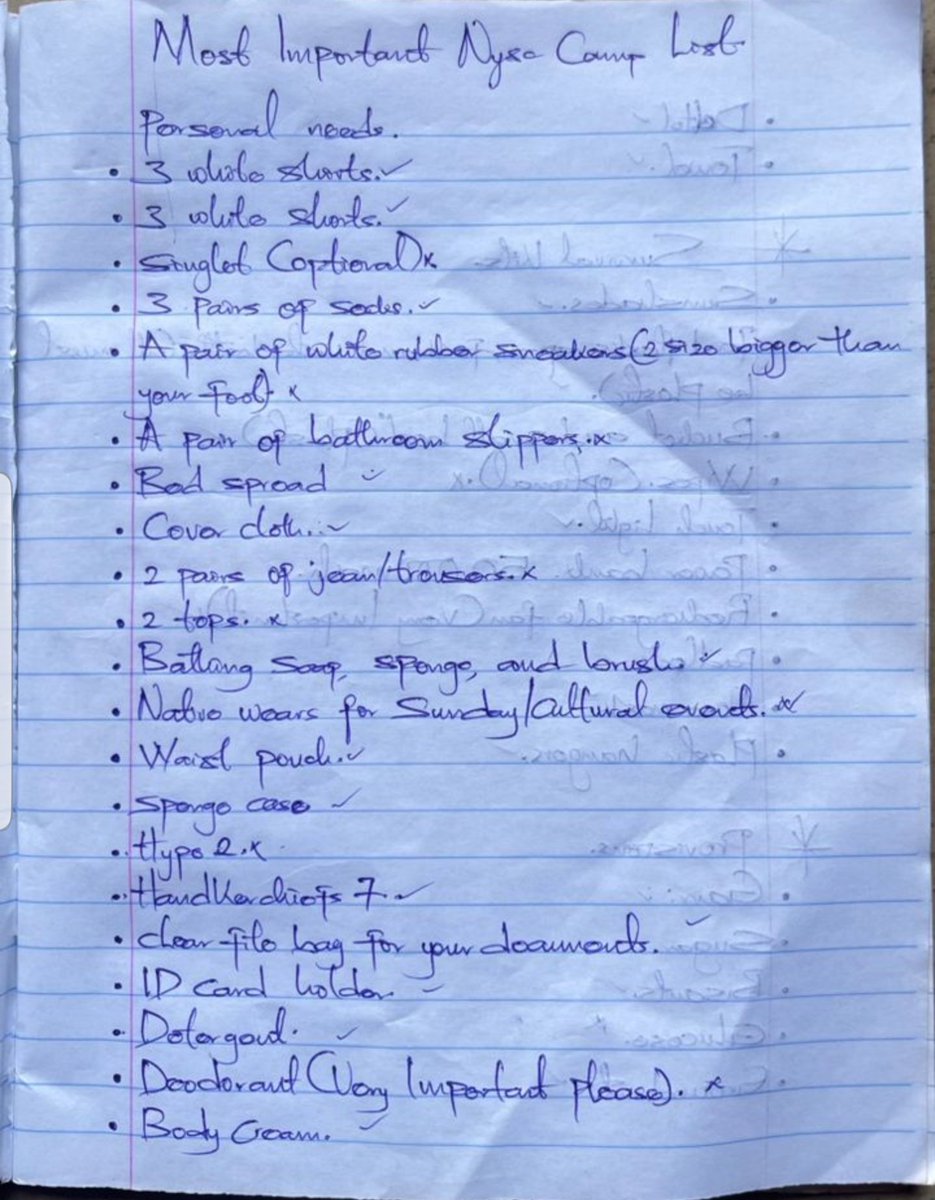 Most Important Nysc Camp List
Personal needs.
• 3 white shorts. ✓
• 3 white shorts. ✓
• Singlet (optional) x
• 3 pairs of socks. ✓
• A pair of white rubber sneakers (2 size bigger than
your foot) x
• A pair of bathroom slippers. x
• Bed spread ✓
• Cover cloth. ✓
• 2 pairs of jean/trousers. x
• 2 tops. x
• Bathing soap, sponge, and brush. ✓
• Native wears for Sunday/Cultural events. x
• Waist pouch. ✓
• Sponge case ✓
• Hypo 2. x
• Handkerchiefs 7. ✓
• clear file bag for your documents. ✓
• ID card holder. ✓
• Detergent. ✓
• Deodorant (Very Important please). x
• Body Cream. ✓